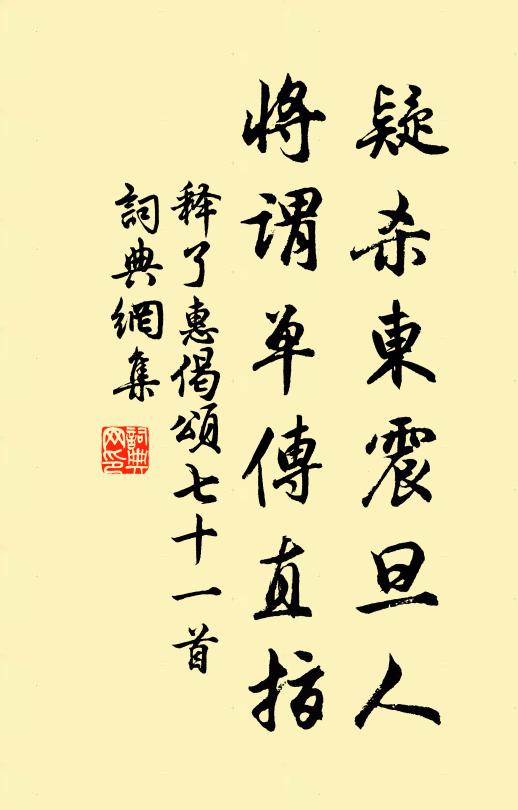 疑杀東震旦人
将谓单傳直指
释了惠偈頌七十一首
詞典網集
詞典网印